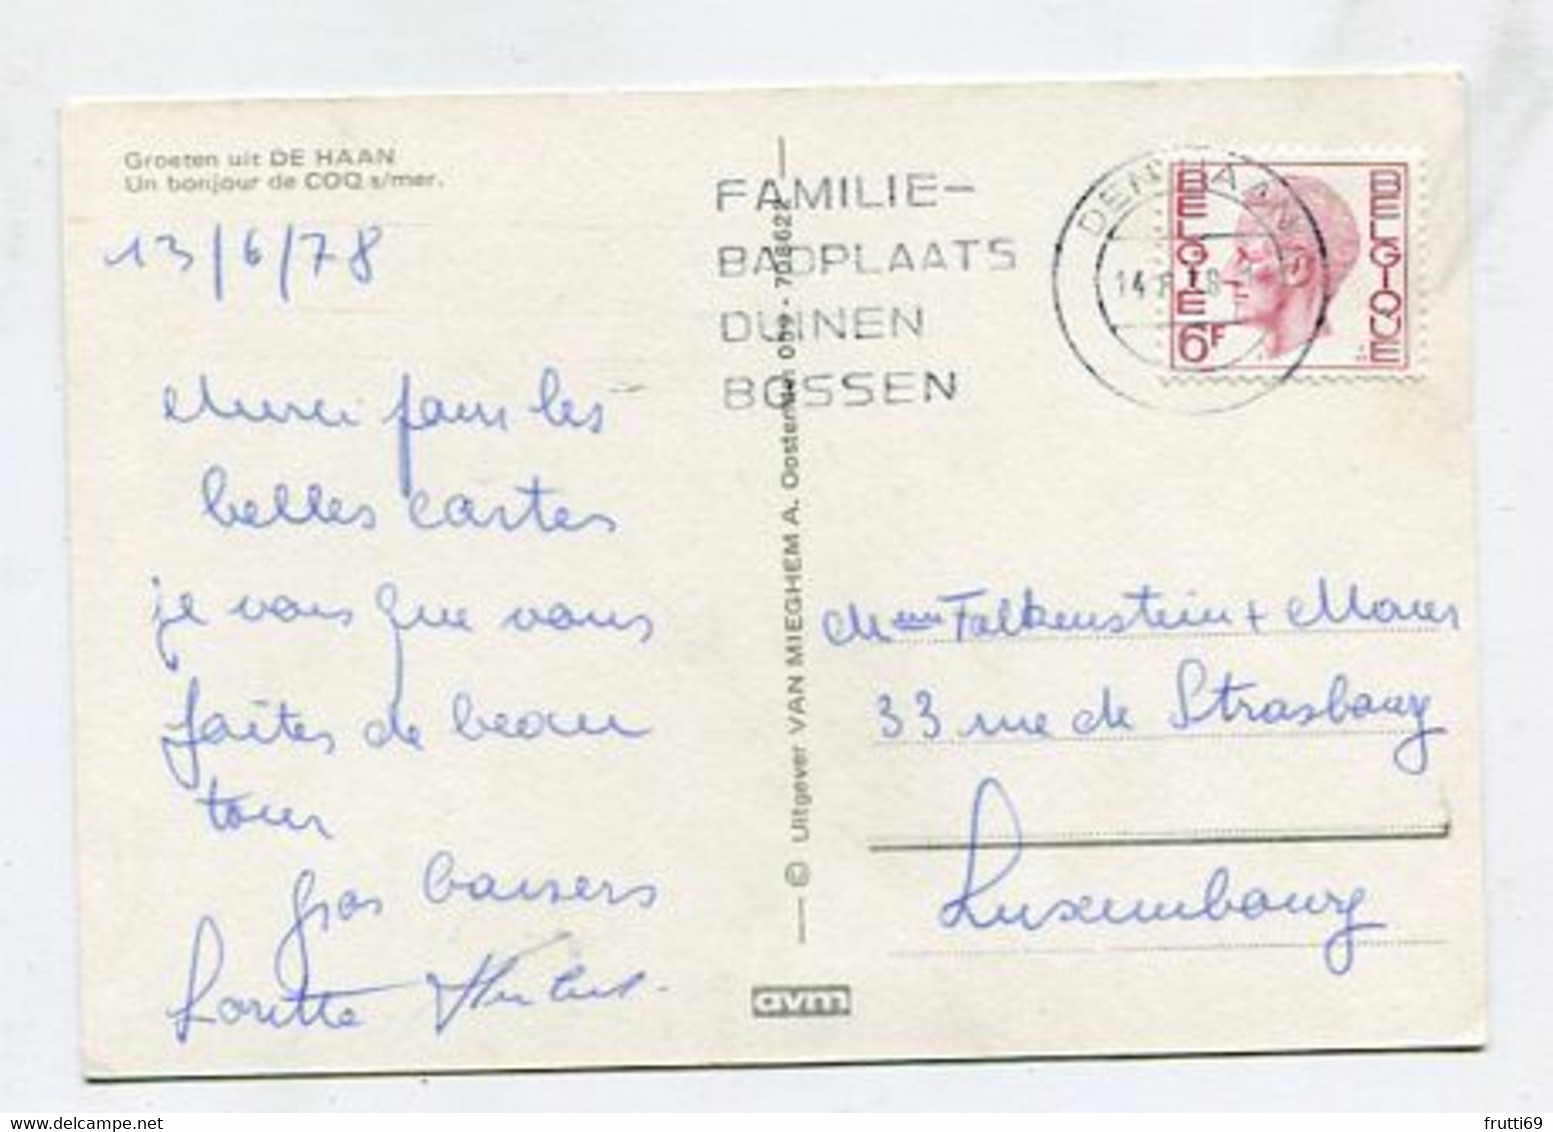 Groeten uit DE HAAN
Un bonjour de COQ s/mer.
13/6/78
Merci pour les
belles cartes
je vois que vous
faites de beau
tour
gros baisers
Lorette Hubert.
FAMILIE-
BADPLAATS
DUINEN
BOSSEN
DEN HAAN
14
BELGIE
BELGIQUE
6F
© Uitgever VAN MIEGHEM A. Oostende 059 - 708622
avm
Falkenstein +
33 rue de Strasbourg
Luxembourg
frutti69